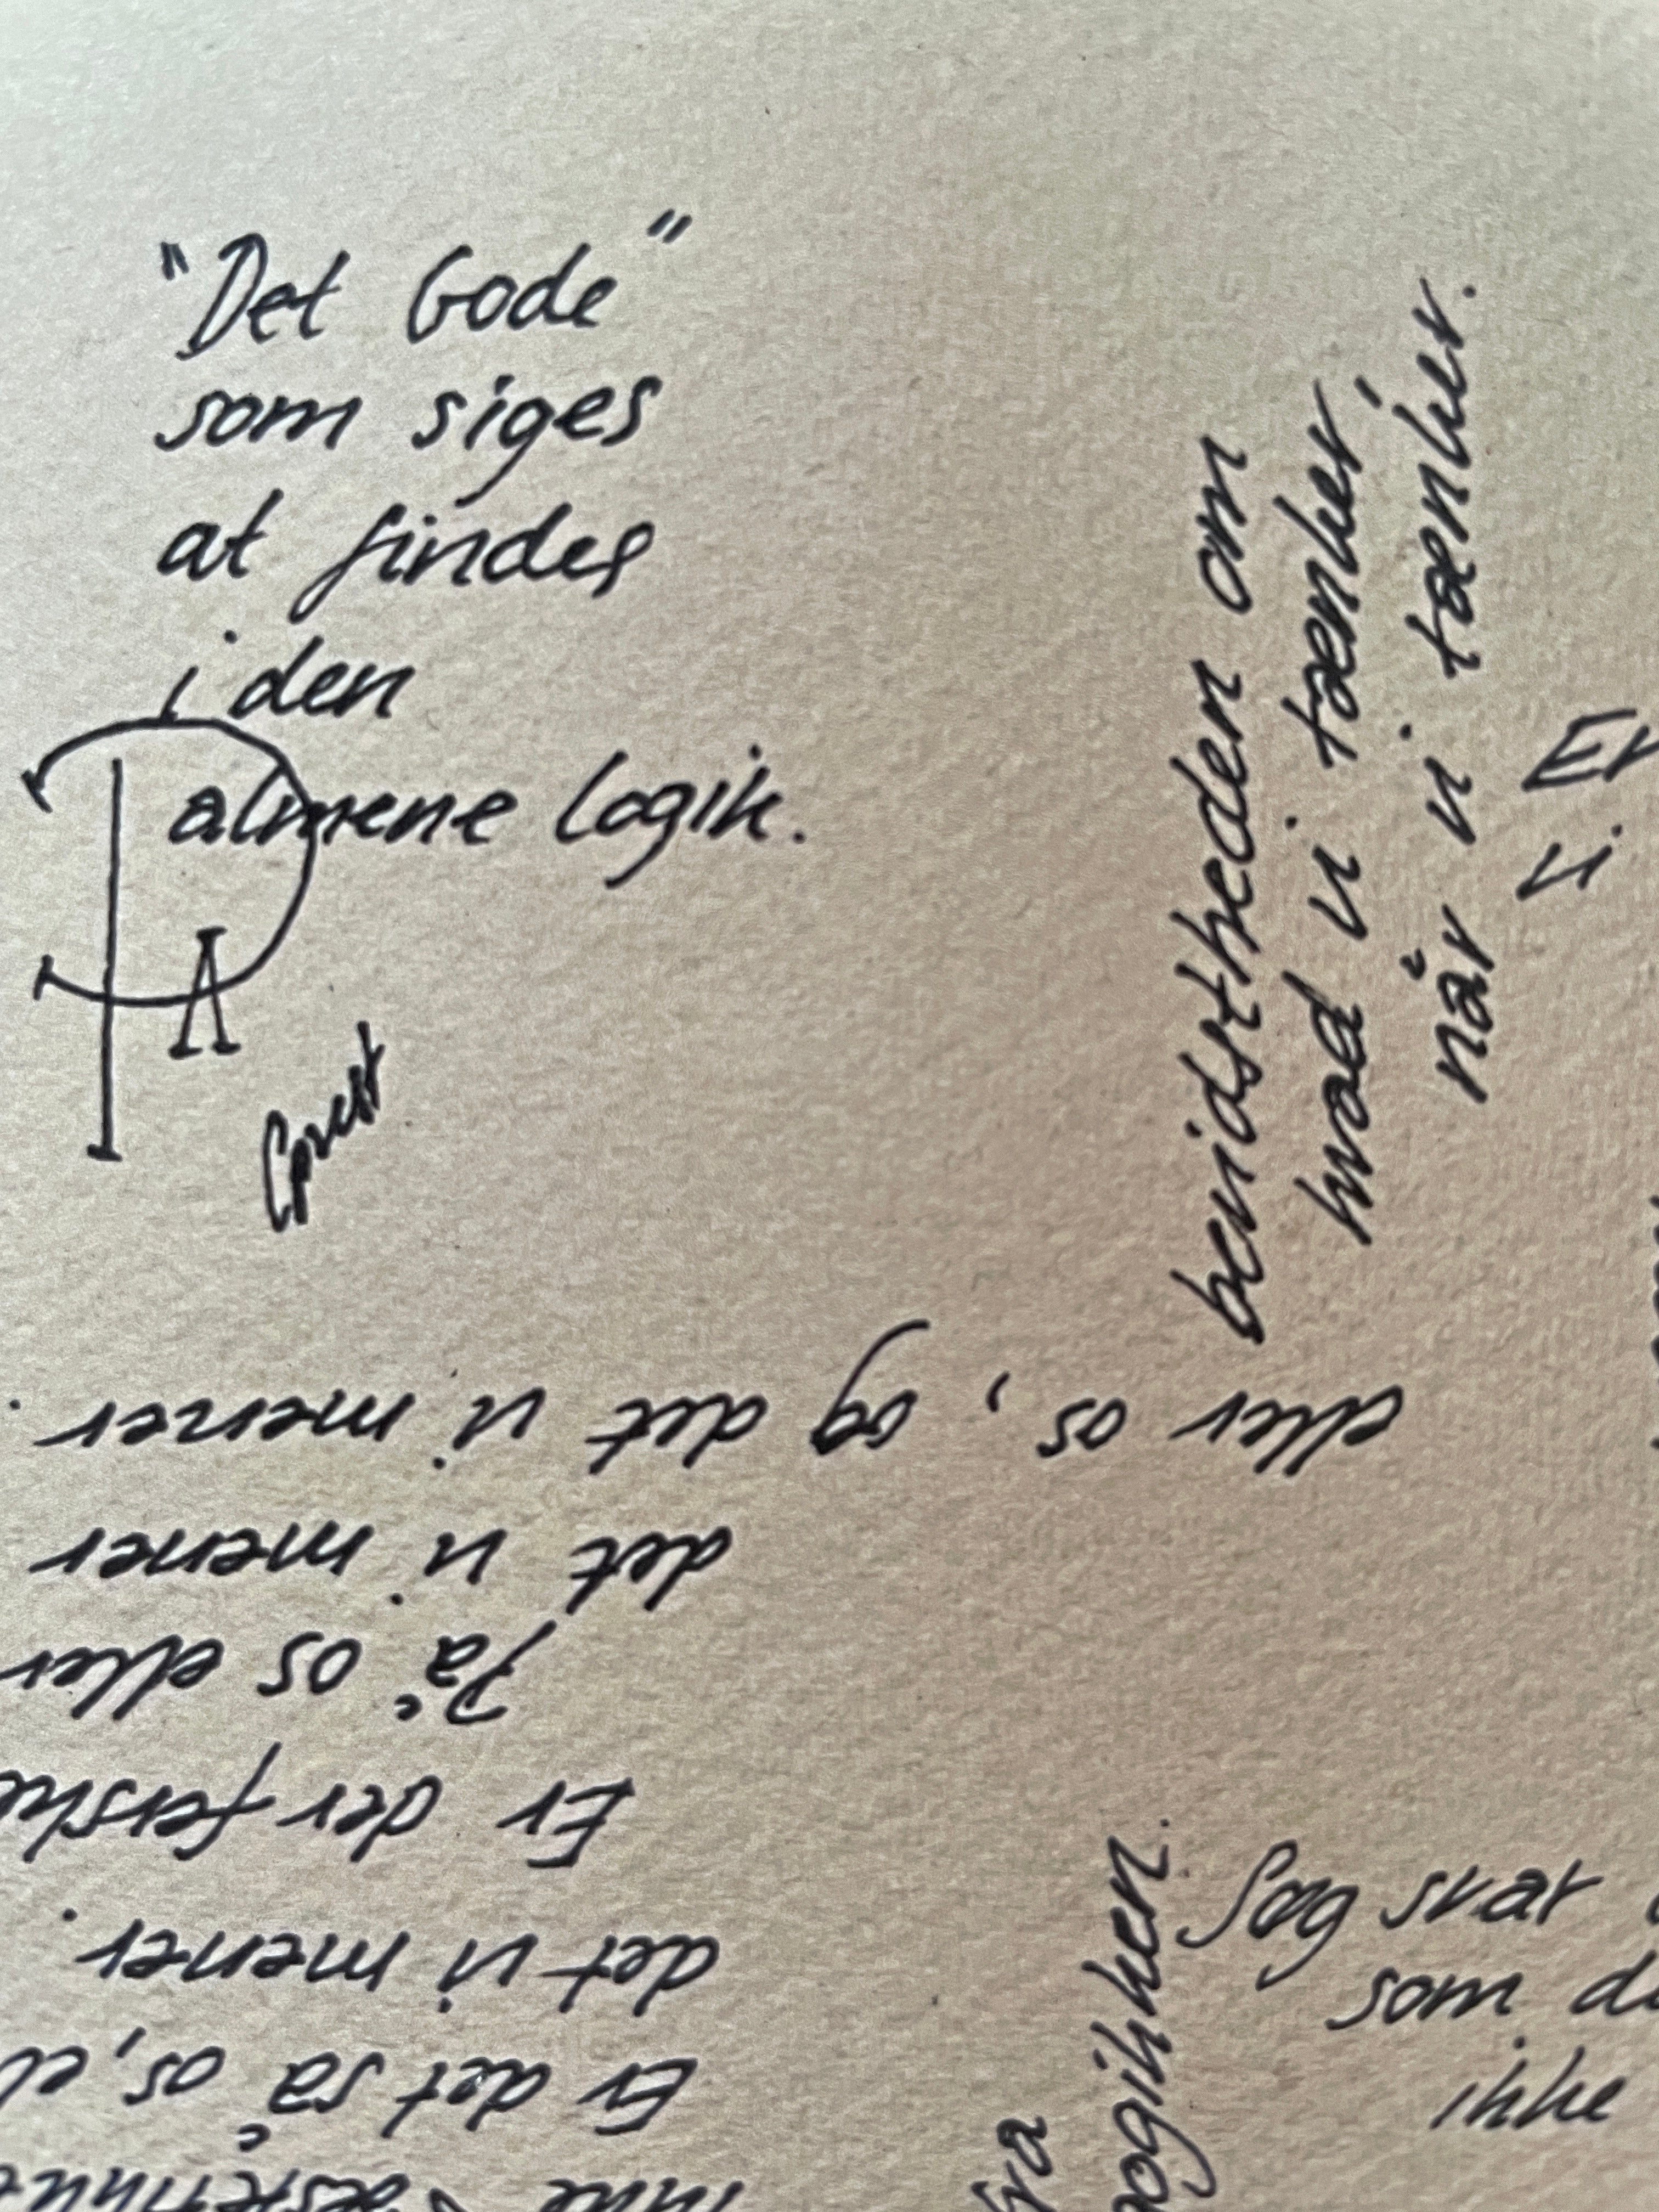 "Det Gode"
som siges
at findes
i den
almene logik.
P
A
bevidstheden om
hvad vi tænker,
når vi tænker.
Er
vi
eller os, og det vi mener.
det vi mener
På os eller
Er der forske
det vi mener.
Er det så os, el
ikke
fra
ogikken.
Søg svar
som de
ikke